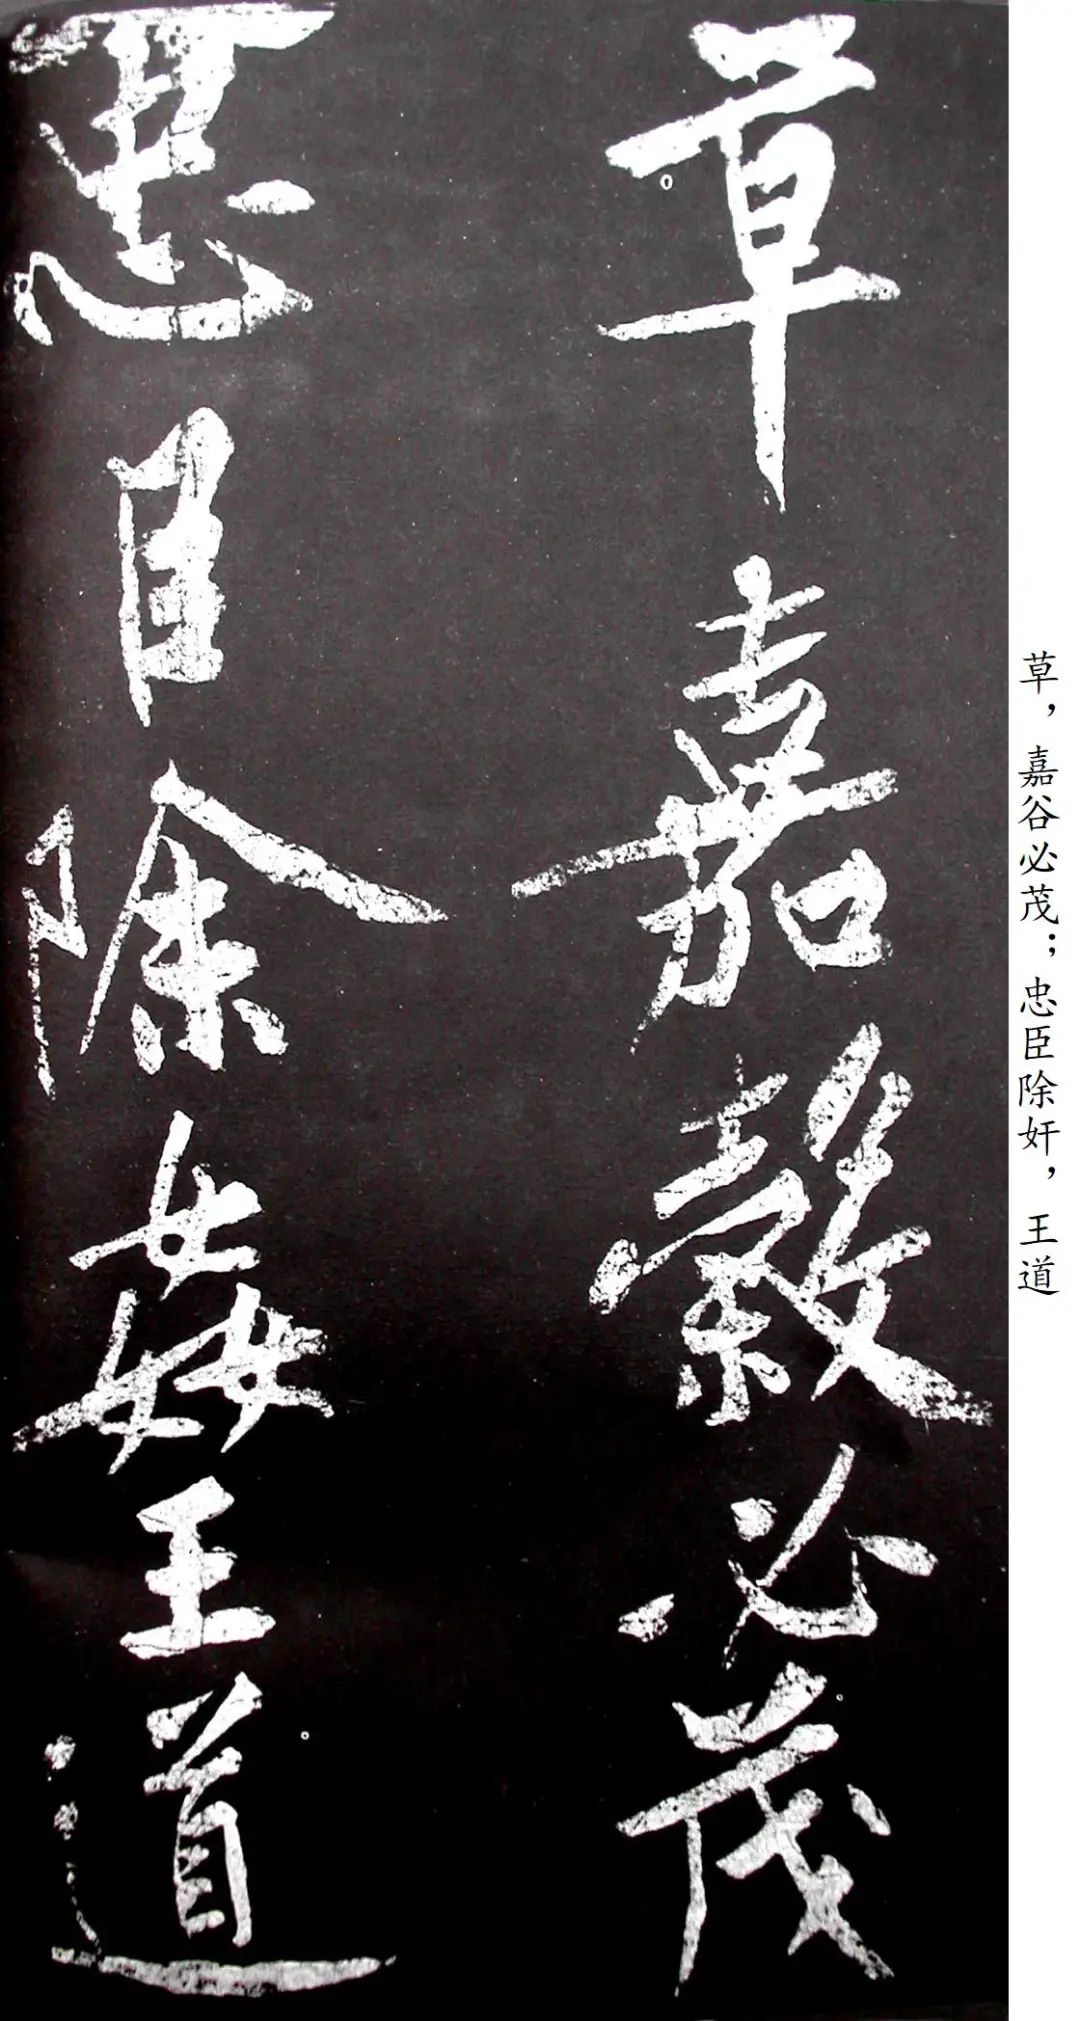 草嘉穀必茂
忠臣除姦王道
草，嘉谷必茂；忠臣除奸，王道